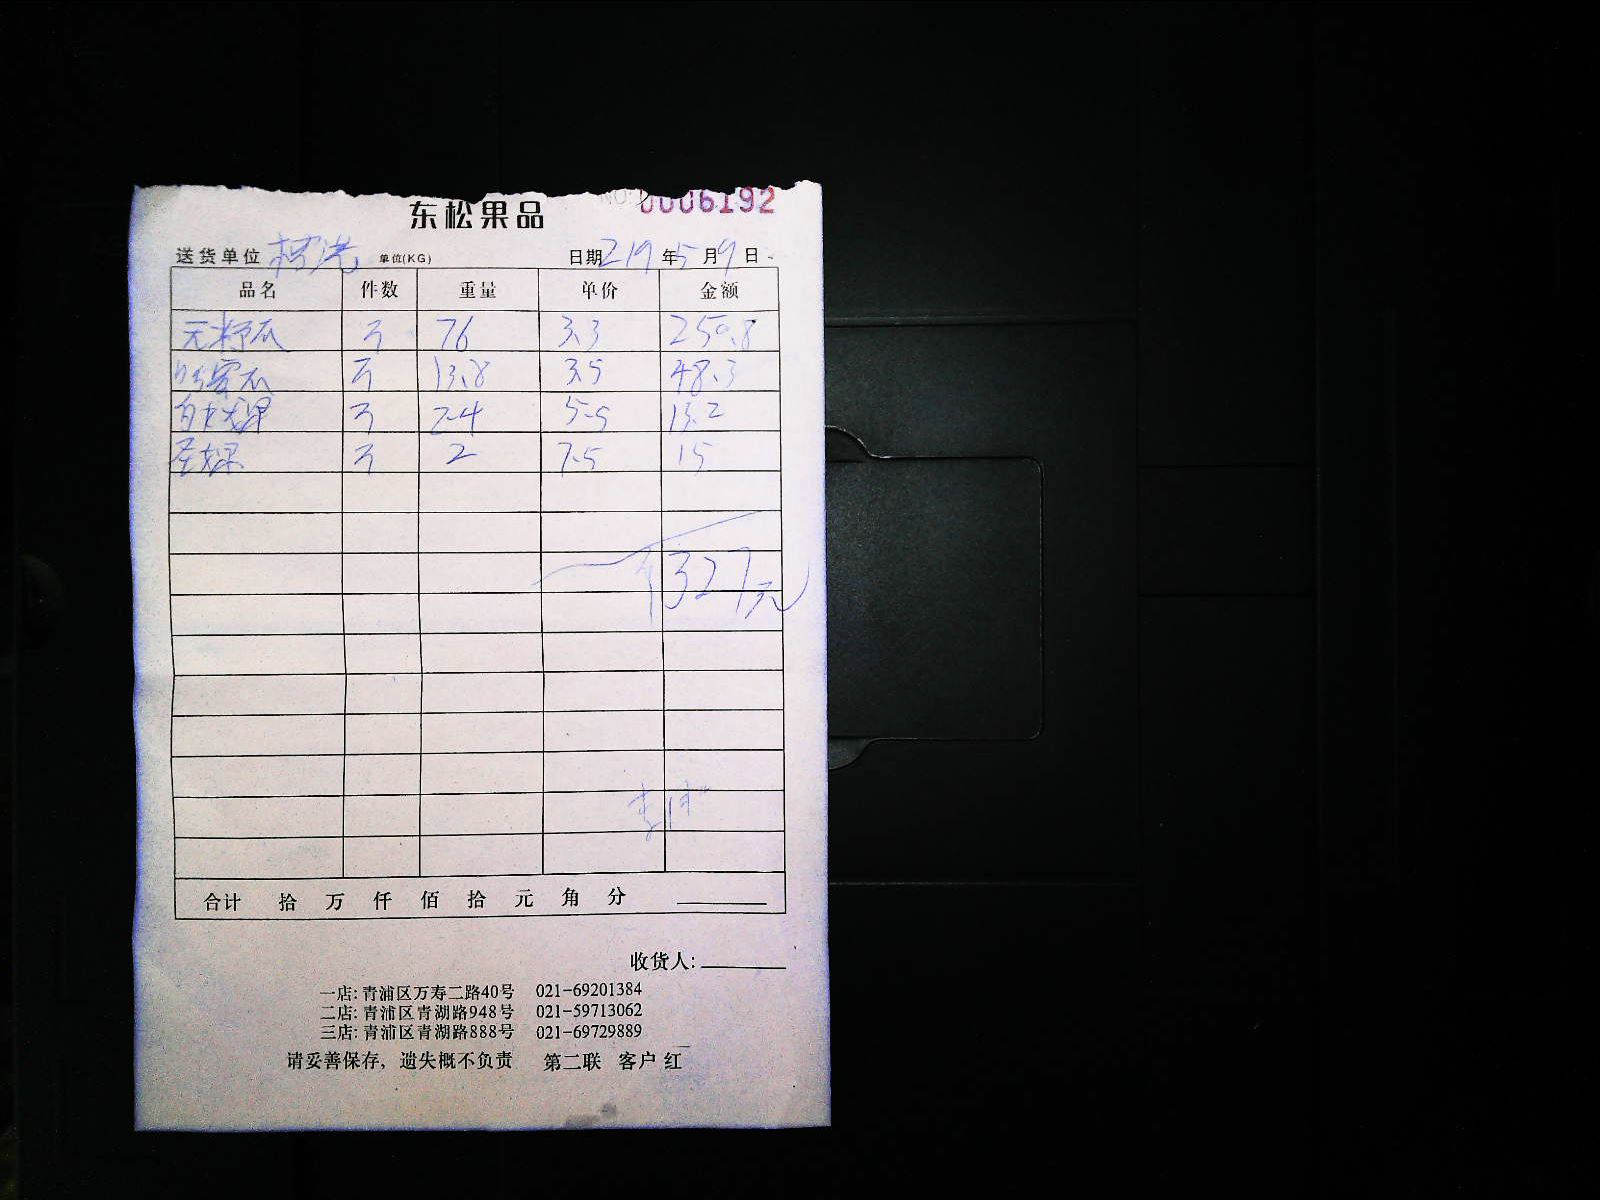 东松果品
NO: 0006192
送货单位 单位(KG) 日期 219年5月9日
品名 件数 重量 单价 金额
无籽瓜 76 3.3 250.8
哈密瓜 13.8 3.5 48.3
2.4 5.5 13.2
圣女果 2 7.5 15
327元
合计 拾 万 仟 佰 拾 元 角 分
收货人:
一店: 青浦区万寿二路40号 021-69201384
二店: 青浦区青湖路948号 021-59713062
三店: 青浦区青湖路888号 021-69729889
请妥善保存, 遗失概不负责 第二联 客户 红